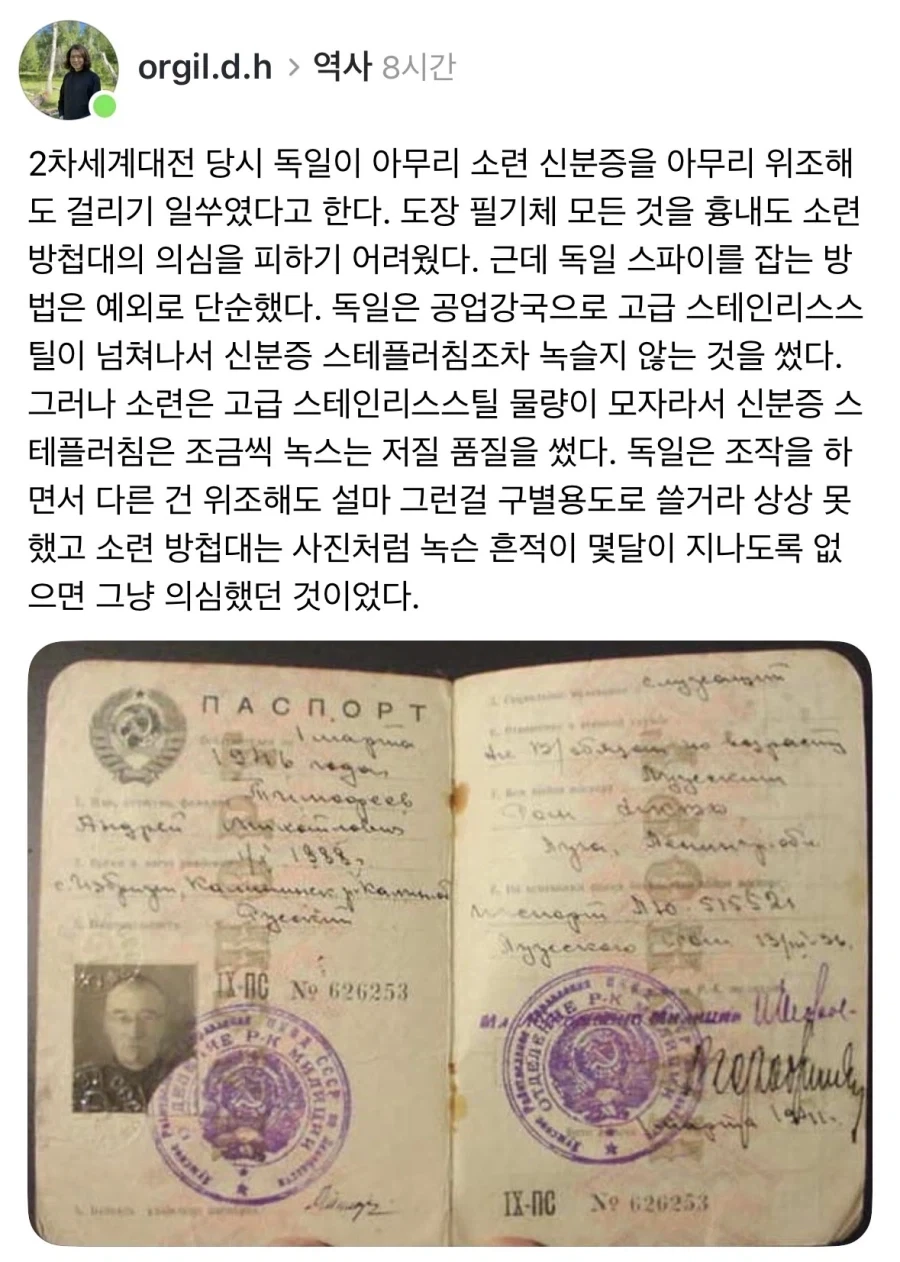 orgil.d.h > 역사 8시간
2차세계대전 당시 독일이 아무리 소련 신분증을 아무리 위조해
도 걸리기 일쑤였다고 한다. 도장 필기체 모든 것을 흉내도 소련
방첩대의 의심을 피하기 어려웠다. 근데 독일 스파이를 잡는 방
법은 예외로 단순했다. 독일은 공업강국으로 고급 스테인리스스
틸이 넘쳐나서 신분증 스테플러침조차 녹슬지 않는 것을 썼다.
그러나 소련은 고급 스테인리스스틸 물량이 모자라서 신분증 스
테플러침은 조금씩 녹스는 저질 품질을 썼다. 독일은 조작을 하
면서 다른 건 위조해도 설마 그런걸 구별용도로 쓸거라 상상 못
했고 소련 방첩대는 사진처럼 녹슨 흔적이 몇달이 지나도록 없
으면 그냥 의심했던 것이었다.
ПАСПОРТ
1 марта
1946 года
Тимофеев
Андрей Михайлович
1888
Русский
IX-ПС № 626253
ОТДЕЛЕНИЕ Р-К МИЛИЦИИ
служащий
Не в/обязан по возрасту
Лужский
Луга, Ленингр. обл.
паспорт 515521
Лужского
ОТДЕЛЕНИЕ Р-К МИЛИЦИИ
марта
IX-ПС № 626253